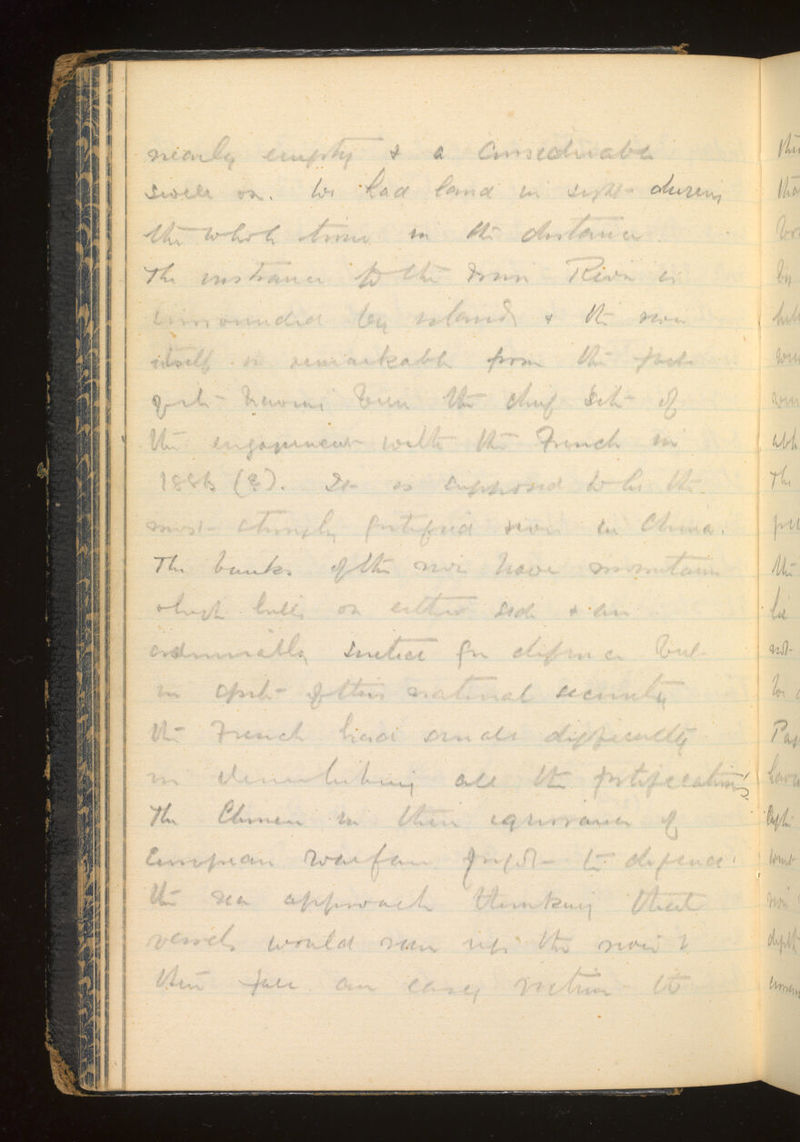 nearly empty & a considerable
swell on. We had land in sight during
the whole time in the distance.
The entrance to the Min River is
surrounded by islands & the river
itself is remarkable from the fact
of its having been the chief seat of
the engagement with the French in
188 (?). It is supposed to be the
most strongly fortified river in China.
The banks of the river have mountains
& high hills on either side & are
admirably suited for defence but
in spite of this natural security
the French had small difficulty
in demolishing all the fortifications.
The Chinese in their ignorance of
European warfare forgot to defend
the sea approach thinking that
vessels would run up the river &
then fall an easy victim to
thi
tha
by
The
the
be
not
Pa
have
river
depth